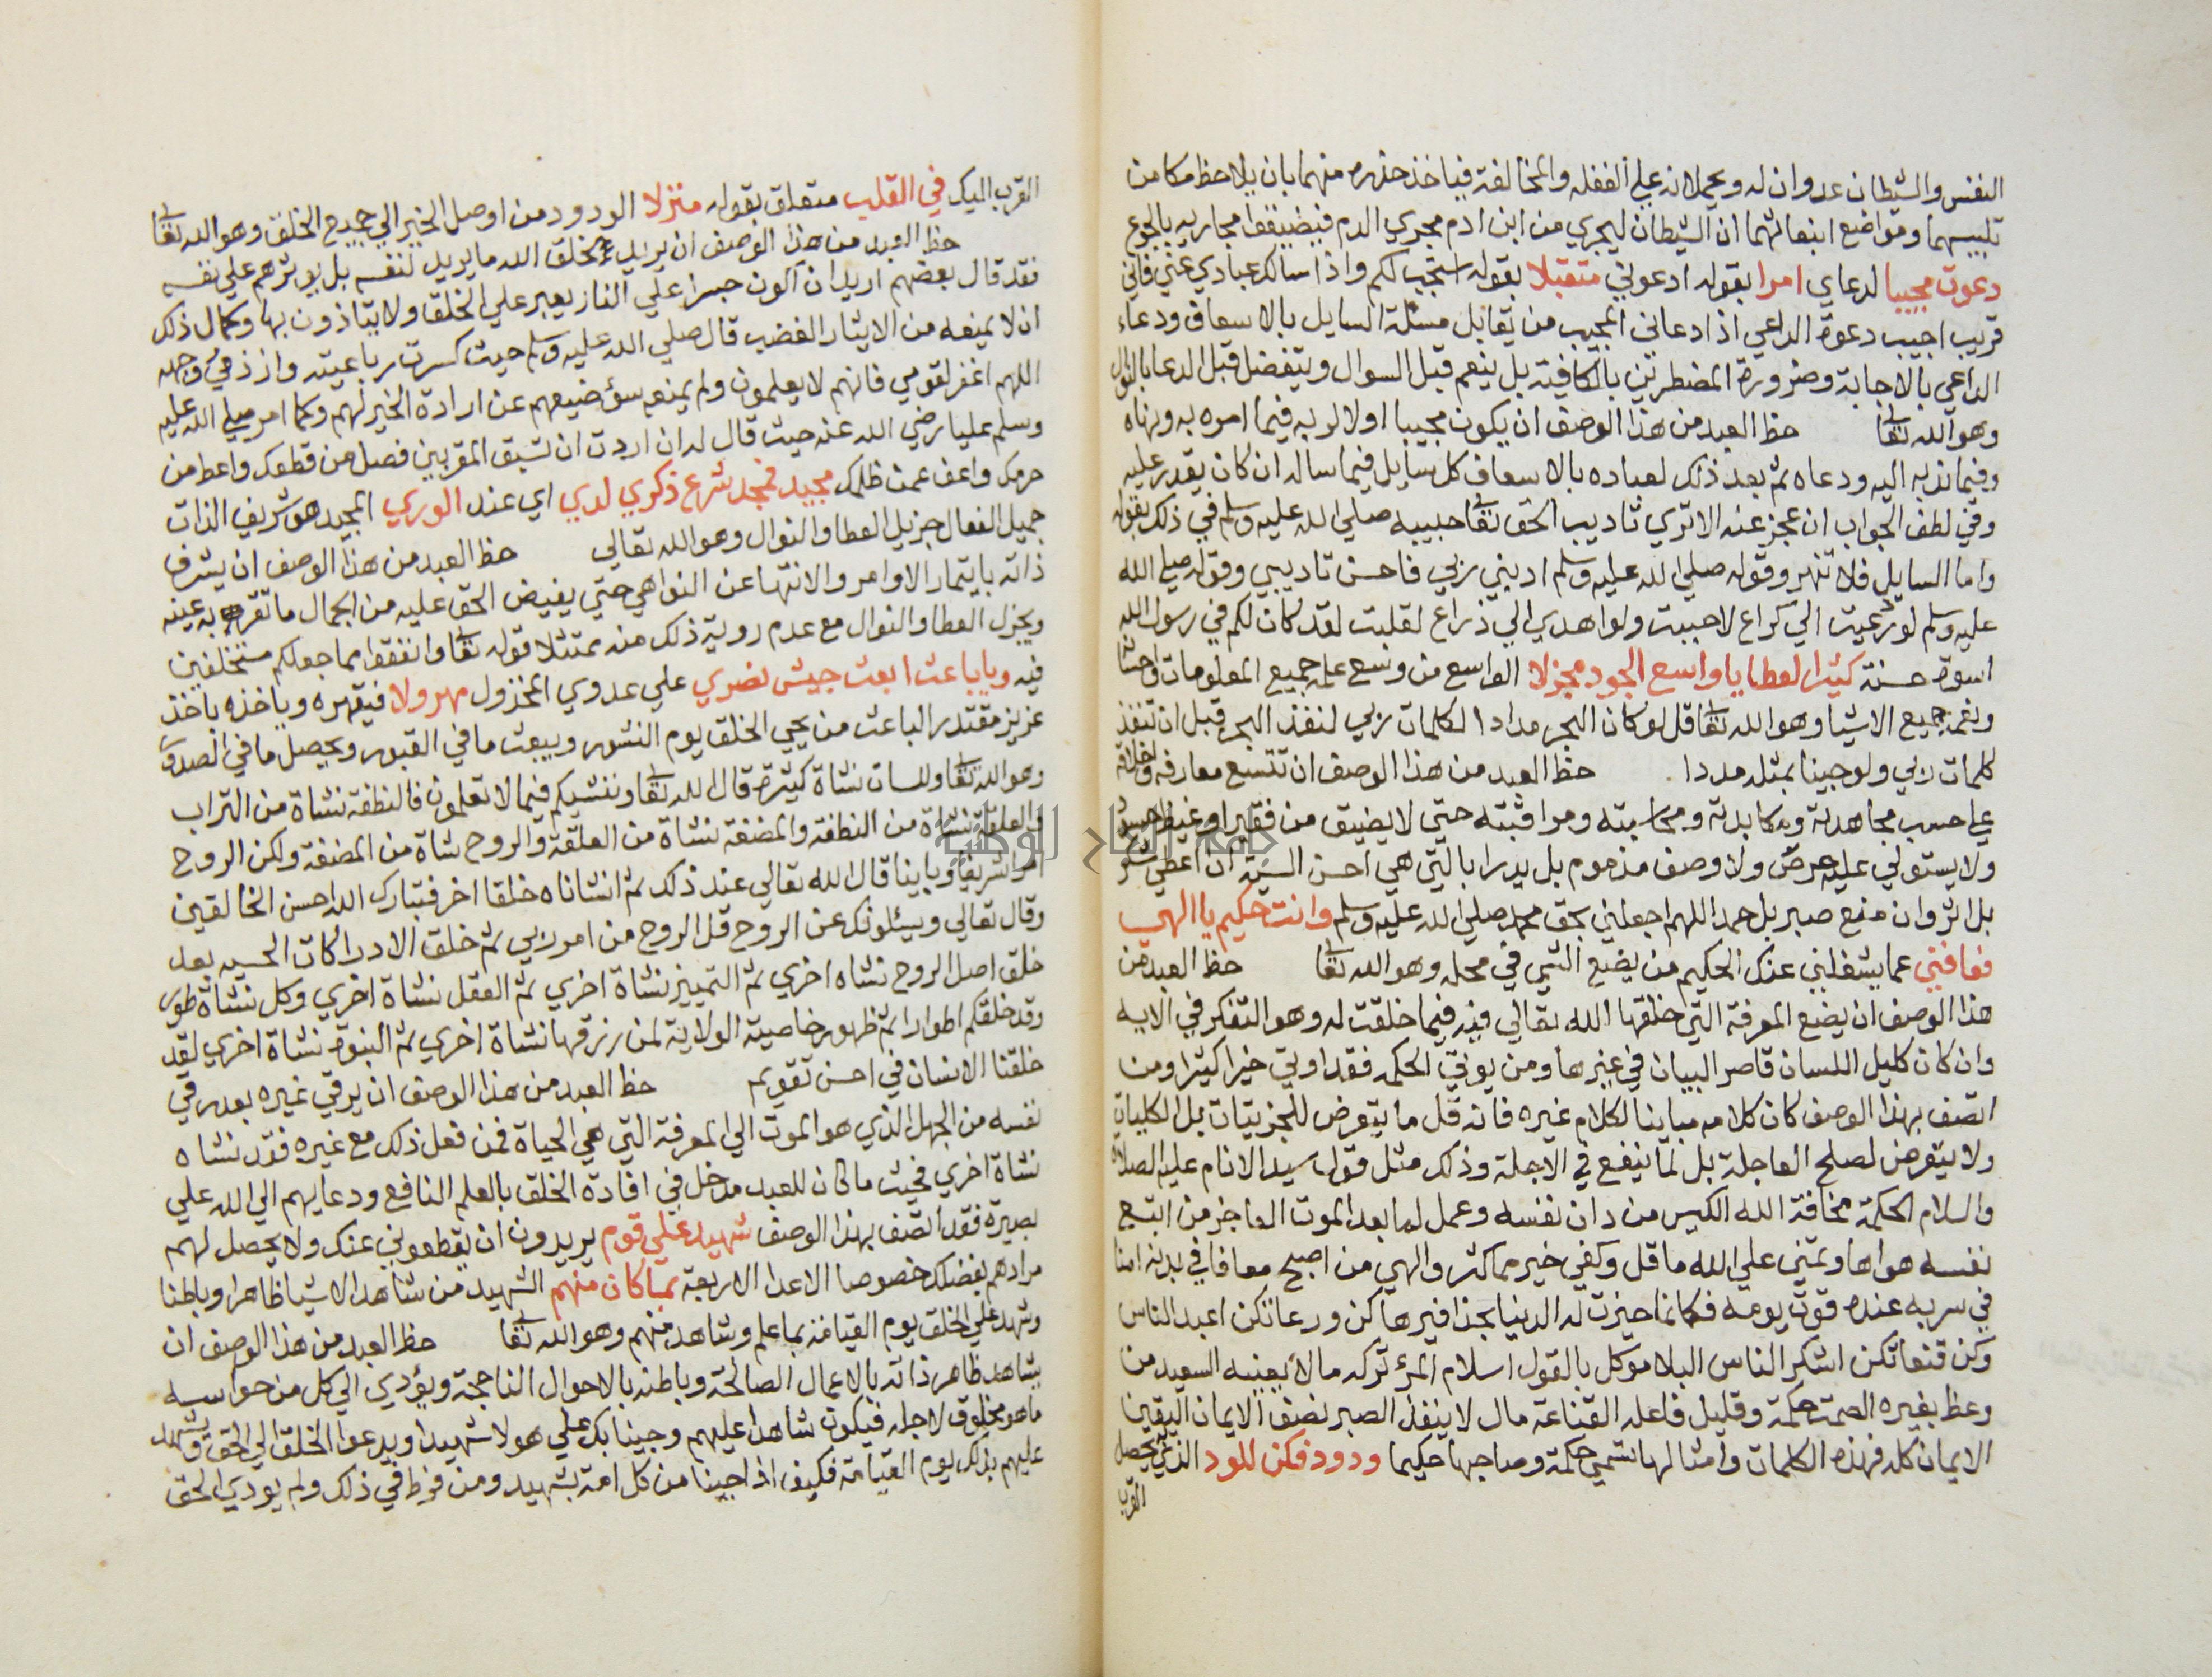 النفس والشيطان عدوان له ويحملانه علي الغفله والمخالفة فياخذ حذره منهما بان يلاحظ مكامن
تلبيسهما ومواضع انبعاثهما ان الشيطان ليجري من ابن ادم مجري الدم فيضيقوا مجاريه بالجوع
دعوت مجيبا لدعاي امرا بقوله ادعوني متقبلا بقوله استجب لكم واذا سالك عبادي عني فاني
قريب اجيب دعوة الداعي اذا دعاني المجيب من يقابل مسئلة السايل بالاسعاف ودعاء
الداعي بالاجابة وضرورة المضطرين بالكافية بل ينعم قبل السوال ويتفضل قبل الدعا بالنوال
وهو الله تعا حظ العبد من هذا الوصف ان يكون مجيبا اولا لربه فيما امره به ونهاه
وفيما ندبه اليه ودعاه ثم بعد ذلك لعباده بالاسعاف كل سايل فيما ساله ان كان يقدر عليه
وفي لطف الجواب ان عجز عنه الا تري تاديب الحق تعا حبيبه صلي الله عليه وسلم في ذلك بقوله
واما السايل فلا تنهر وقوله صلي الله عليه وسلم ادبني ربي فاحسن تاديبي وقوله صلي الله
عليه وسلم لو دعيت الي كراع لاجبت ولو اهدي الي ذراع لقبلت لقد كان لكم في رسول الله
اسوة حسنة كثير العطايا واسع الجود مجزلا الواسع من وسع علمه جميع المعلومات واحسانه
ونعمه جميع الاشيا وهو الله تعا قل لو كان البحر مدادا لكلمات ربي لنفد البحر قبل ان تنفد
كلمات ربي ولو جينا بمثله مددا حظ العبد من هذا الوصف ان تتسع معارفه واخلاقه
علي حسب مجاهدته ومكابدته ومحاسبته ومراقبته حتي لا يضيق من فقير او غيظ حسود
ولا يستولي عليه حرص ولا وصف مذموم بل يدرا بالتي هي احسن السيئة ان اعطي شكر
بل اثر وان منع صبر بل حمد اللهم اجعلني بحق محمد صلي الله عليه وسلم وانت حكيم يا الهي
فعافني عما يشغلني عنك الحكيم من يضع الشي في محله وهو الله تعا حظ العبد من
هذا الوصف ان يضع المعرفة التي خلقها الله تعالي فيه فيما خلقت له وهو التفكر في الايه
وان كان كليل اللسان قاصر البيان في غيرها ومن يوتي الحكمة فقد اوتي خيرا كثيرا ومن
اتصف بهذا الوصف كان كلامه مباينا لكلام غيره فانه قل ما يتعرض للجزيئات بل الكليات
ولا يتعرض لصلح العاجلة بل لما ينفع في الاجلة وذلك مثل قوله سيد الانام عليه الصلاة
والسلام الحكمة مخافة الله الكيس من دان نفسه وعمل لما بعد الموت العاجز من اتبع
نفسه هواها وتمني علي الله ما قل وكفي خير مما كثر والهي من اصبح معافا في بدنه امنا
في سربه عنده قوت يومه فكانما حيزت له الدنيا بحذافيرها كن ورعا تكن اعبد الناس
وكن قنعا تكن اشكر الناس البلا موكل بالقول اسلام المرؤ تركه ما لا يعنيه السعيد من
وعظ بغيره الصمت حكمة وقليل فاعله القناعة مال لا ينفد الصبر نصف الايمان اليقين
الايمان كله فهذه الكلمات وامثالها تسمي حكمة وصاحبها حكيما ودود فكن للود الذي يحصل
القرب
القرب اليك في القلب متعلق بقوله منزلا الودود من اوصل الخير الي جميع الخلق وهو الله تعا
حظ العبد من هذا الوصف ان يريد لخلق الله ما يريد لنفسه بل يوثرهم علي نفسه
فقد قال بعضهم اريد ان اكون جسرا علي النار يعبر علي الخلق ولا يتاذون بها وكمال ذلك
ان لا يمنعه من الايثار الغضب قال صلي الله عليه وسلم حيث كسرت رباعيته واذ دمي وجهه
اللهم اغفر لقومي فانهم لا يعلمون ولم يمنعه سؤ ضيعهم عن ارادة الخير لهم وكما امر صلي الله عليه
وسلم عليا رضي الله عنه حيث قال له ان اردت ان تسبق المقربين فصل من قطعك واعط من
حرمك واعف عمن ظلمك مجيد فمجد شرع ذكري لدي اي عند الوري المجيد هو شريف الذات
جميل الفعال جزيل العطا والنوال وهو الله تعالي حظ العبد من هذا الوصف ان يشرف
ذاته بايتمار الاوامر والانتها عن النواهي حتي يفيض الحق عليه من الجمال ما تقر به عينه
ويجزل العطا والنوال مع عدم روية ذلك منه ممتثلا قوله تعا وانفقوا مما جعلكم مستخلفين
فيه ويا باعث ابعث جيش نصري علي عدوي المخذول مهرولا فيقهره وياخذه باخذ
عزيز مقتدر الباعث من يحي الخلق يوم النشور ويبعث ما في القبور ويحصل ما في الصدور
وهو الله تعا وللسات نشاة كثيرة قال الله تعا وننشيكم فيما لا تعلمون فالنطفة نشاة من التراب
والعلقة نشاة من النطفة والمضغة نشاة من العلقة والروح نشاة من المضغة ولكن الروح
امرا شريفا وباينا قال الله تعالي عند ذكد ثم انشاناه خلقا اخر فتبارك الله احسن الخالقين
وقال تعالي ويسئلونك عن الروح قل الروح من امر ربي ثم خلق الادراكات الحسيه بعد
خلق اصل الروح نشاه اخري ثم التمييز نشاة اخري ثم العقل نشاة اخري وكل نشاة طور
وقد خلقكم اطوارا ثم ظهور خاصية الولاية لمن رزقها نشاة اخري ثم النبوة نشاة اخري لقد
خلقنا الانسان في احسن تقويم حظ العبد من هذا الوصف ان يرقي غيره بعد رقي
نفسه من الجهل الذي هو الموت الي المعرفة التي هي الحياة فمن فعل ذلك مع غيره فقد نشاه
نشاة اخري فحيث ما كان للعبد مدخل في افادة الخلق بالعلم النافع ودعايهم الي الله علي
بصيرة فقد اتصف بهذا الوصف شهيد علي قوم يريدون ان يقطعوني عنك ولا يحصل لهم
مرادهم بفضلك خصوصا الاعدا الاربعة بما كان منهم الشهيد من شاهد الاشيا ظاهرا وباطنا
وشهد علي الخلق يوم القيامة بما علم وشاهد منهم وهو الله تعا حظ العبد من هذا الوصف ان
يشاهد ظاهر ذاته بالاعمال الصالحة وباطنه بالاحوال الناجحة ويؤدي الي كل من حواسه
ما هو مخلوق لاجله فيكون شاهدا عليهم وجينا بك علي هولا شهيدا ويدعوا الخلق الي الحق ويشهد
عليهم بذلك يوم القيامة فكيف اذا جينا من كل امة بشهيد ومن فرط في ذلك ولم يودي الحق